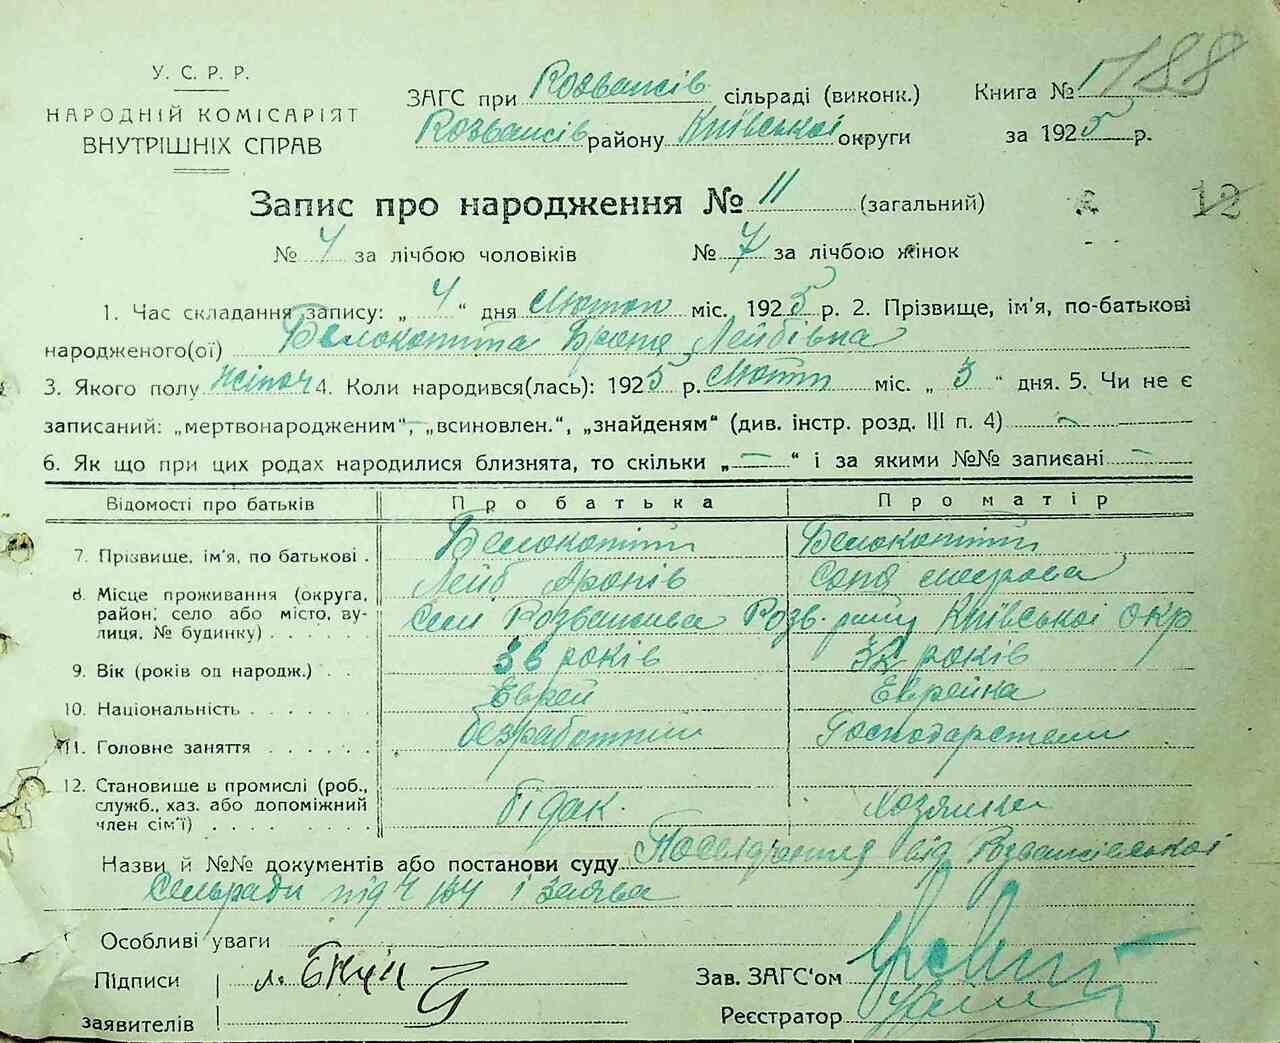 У. С. Р. Р.
НАРОДНІЙ КОМІСАРІЯТ
ВНУТРІШНІХ СПРАВ
ЗАГС при Розважів сільраді (виконк.)
Розважів району Київської округи
Книга № 1
188
за 1925 р.
Запис про народження № 11 (загальний)
12
№ 4 за лічбою чоловіків № 7 за лічбою жінок
1. Час складання запису: „ 4 “ дня Лютого міс. 1925 р. 2. Прізвище, ім'я, по-батькові
народженого(ої) Белокопита Броня Лейбівна
3. Якого полу жіноч 4. Коли народився(лась): 1925 р. міс. „ 3 “ дня. 5. Чи не є
записаний: „мертвонародженим“, „всиновлен.“, „знайденям“ (див. інстр. розд. III п. 4) —
6. Як що при цих родах народилися близнята, то скільки „ — “ і за якими №№ записані —
Відомості про батьків Про батька Про матір
7. Прізвище, ім'я, по батькові . Белокопити Белокопити
Лейб Аронів Соня
8. Місце проживання (округа,
район, село або місто, ву-
лиця, № будинку) . . . . . . Село Розважів. Київської Окр
9. Вік (років од народж.) . . 36 років 32 років
10. Національність . . . . . . . Еврей Еврейка
11. Головне заняття . . . . . . безработний
12. Становише в промислі (роб.,
служб., хаз. або допоміжний
член сім'ї) . . . . . . . . . бідак. Хозяйка
Назви й №№ документів або постанови суду Посвідчення від Розважівської
Сельради під ч 134 і заява
Особливі уваги
Підписи
заявителів
Зав. ЗАГС'ом
Реєстратор